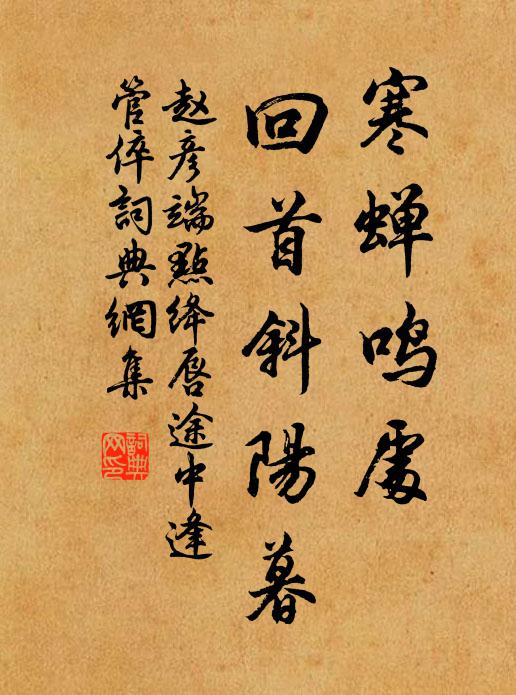 寒蝉鸣處
回首斜陽暮
赵彦端點绛唇途中逢
管倅詞典網集
詞典网印